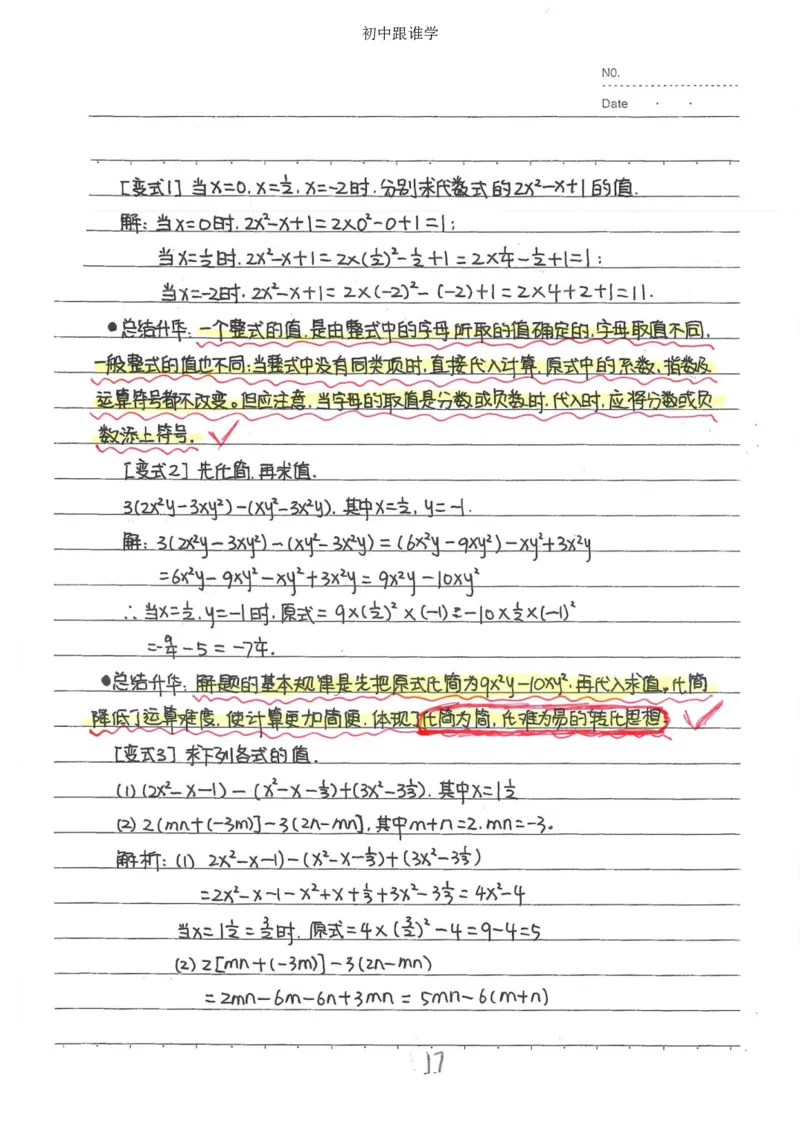 初中跟谁学
NO.
Date · ·
[变式1] 当x=0, x=½, x=-2时,分别求代数式的2x²-x+1的值.
解: 当x=0时, 2x²-x+1=2×0²-0+1=1;
当x=½时, 2x²-x+1=2×(½)²-½+1=2×¼-½+1=1;
当x=-2时, 2x²-x+1=2×(-2)²-(-2)+1=2×4+2+1=11.
●总结升华: 一个整式的值,是由整式中的字母所取的值确定的,字母取值不同,
一般整式的值也不同;当整式中没有同类项时,直接代入计算,原式中的系数、指数及
运算符号都不改变。但应注意,当字母的取值是分数或负数时,代入时,应将分数或负
数添上符号.
[变式2] 先化简,再求值.
3(2x²y-3xy²)-(xy²-3x²y), 其中x=½, y=-1.
解: 3(2x²y-3xy²)-(xy²-3x²y)=(6x²y-9xy²)-xy²+3x²y
=6x²y-9xy²-xy²+3x²y=9x²y-10xy²
∴当x=½, y=-1时,原式=9×(½)²×(-1)-10×½×(-1)²
=-9/4-5=-7¼.
●总结升华: 解题的基本规律是先把原式化简为9x²y-10xy²,再代入求值,化简
降低了运算难度,使计算更加简便,体现了化简为简,化难为易的转化思想
[变式3] 求下列各式的值.
(1) (2x²-x-1)-(x²-x-⅓)+(3x²-3⅓), 其中x=1½
(2) 2[mn+(-3m)]-3(2n-mn), 其中m+n=2, mn=-3。
解析: (1) 2x²-x-1)-(x²-x-⅓)+(3x²-3⅓)
=2x²-x-1-x²+x+⅓+3x²-3⅓=4x²-4
当x=1½=3/2时,原式=4×(3/2)²-4=9-4=5
(2) 2[mn+(-3m)]-3(2n-mn)
=2mn-6m-6n+3mn=5mn-6(m+n)
17